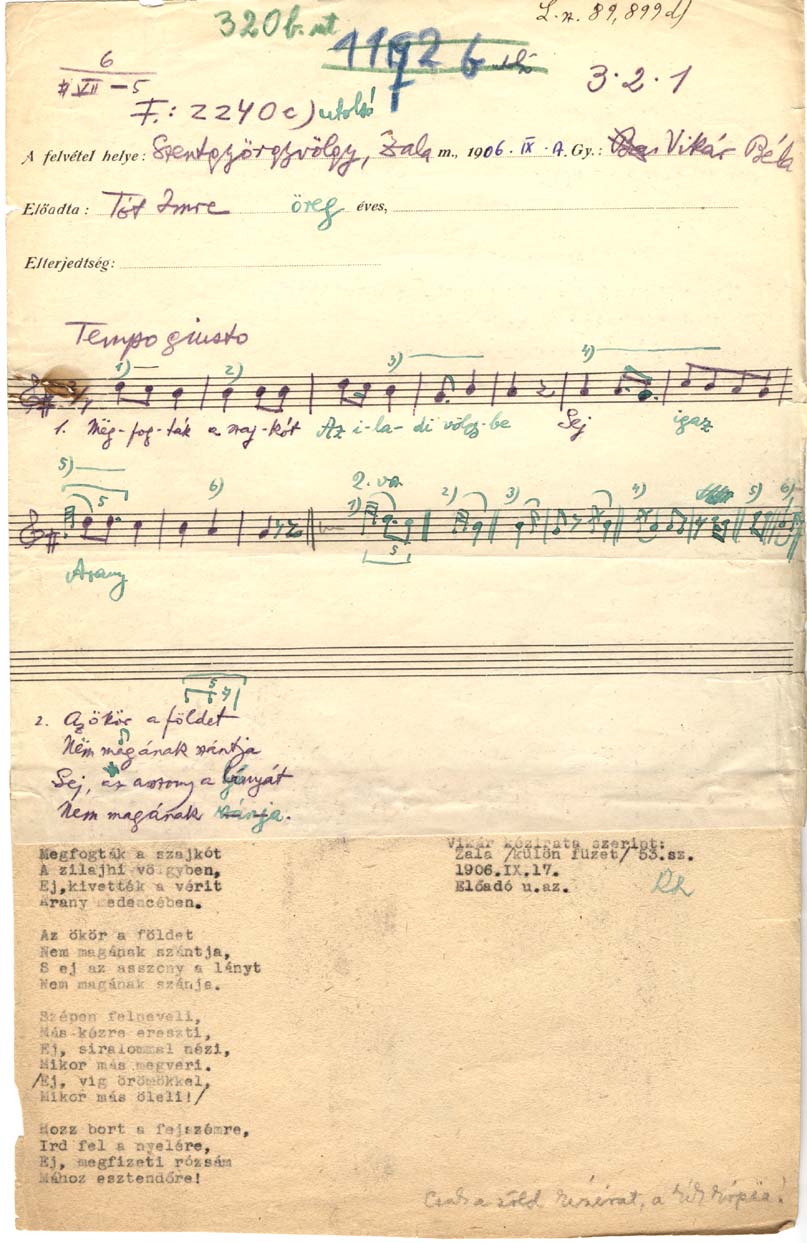 L. sz. 89,899 d)
320 b. ut
1192 b utolsó
6
VII — 5
3 · 2 · 1
F.: 2240 c) utolsó
A felvétel helye: Szentgyörgyvölgy, Zala m., 1906. IX. 17. Gy.: Vikár Béla
Előadta: Tót Imre öreg éves,
Elterjedtség:
Tempo giusto
1) 2) 3) 4)
1. Mëg-fog-ták a szaj-kót Az i-la-di völgy-be Sej igaz
5) 5 6) 2. vsz. 1) 2) 3) 4) 5) 6)
5
Arany
5
2. Az ökör a földet
Nëm magának szántja
Sej, az asszony a lányát
Nem magának szánja.
Megfogták a szajkót
A zilajhi völgyben,
Ej,kivették a vérit
Arany medencében.
Az ökör a földet
Nem magának szántja,
S ej az asszony a lányt
Nem magának szánja.
Szépen felneveli,
Más kézre ereszti,
Ej, siralommal nézi,
Mikor más megveri.
/Ej, vig örömökkel,
Mikor más öleli!/
Hozz bort a fejszémre,
Ird fel a nyelére,
Ej, megfizeti rózsám
Mához esztendőre!
Vikár kézirata szerint:
Zala /külön füzet/ 53.sz.
1906.IX.17.
Előadó u.az.
Csak a zöld